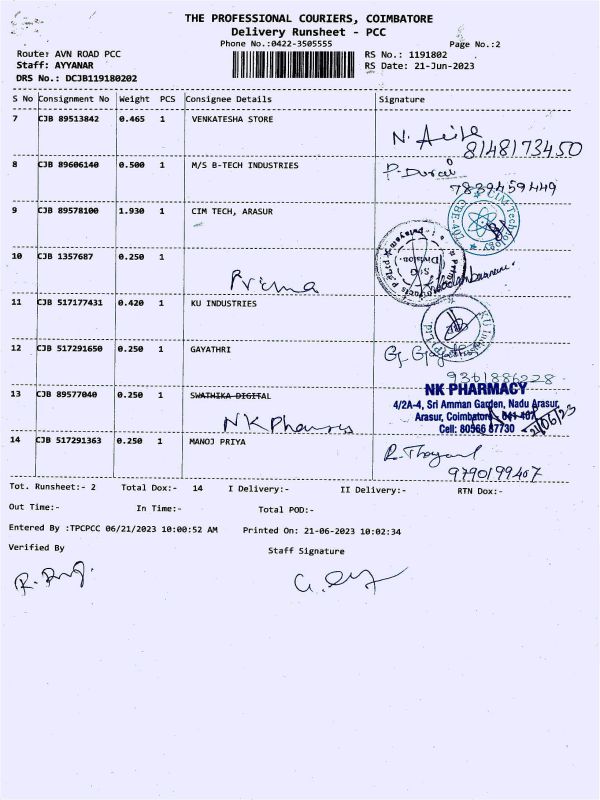 THE PROFESSIONAL COURIERS, COIMBATORE
Delivery Runsheet - PCC
Phone No.:0422-3505555
Page No.:2
Route: AVN ROAD PCC
RS No.: 1191802
Staff: AYYANAR
RS Date: 21-Jun-2023
DRS No.: DCJB119180202
S No Consignment No Weight PCS Consignee Details Signature
7 CJB 89513842 0.465 1 VENKATESHA STORE
8148173450
8 CJB 89606140 0.500 1 M/S B-TECH INDUSTRIES P. Durai
7839459449
9 CJB 89578100 1.930 1 CIM TECH, ARASUR
10 CJB 1357687 0.250 1
Pricma
11 CJB 517177431 0.420 1 KU INDUSTRIES
12 CJB 517291650 0.250 1 GAYATHRI
9361886228
13 CJB 89577040 0.250 1 SWATHIKA DIGITAL
NK PHARMACY
4/2A-4, Sri Amman Garden, Nadu Arasur,
Arasur, Coimbatore - 641 407
Cell: 80566 87730
21/06/23
14 CJB 517291363 0.250 1 MANOJ PRIYA
9790199407
Tot. Runsheet:- 2 Total Dox:- 14 I Delivery:- II Delivery:- RTN Dox:-
Out Time:- In Time:- Total POD:-
Entered By :TPCPCC 06/21/2023 10:00:52 AM Printed On: 21-06-2023 10:02:34
Verified By Staff Signature